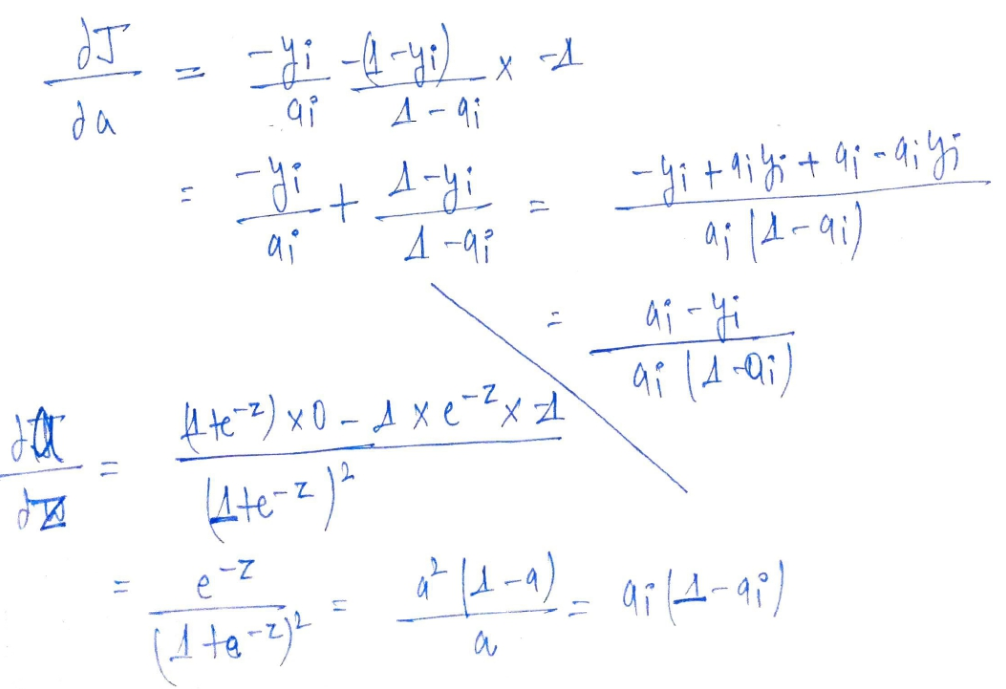 ∂J/∂a = -yi/ai -(1-yi)/(1-ai) × -1
= -yi/ai + (1-yi)/(1-ai) = (-yi + aiyi + ai - aiyi)/(ai(1-ai))
= (ai - yi)/(ai(1-ai))
∂a/∂z = ((1+e^-z)×0 - 1×e^-z × -1)/(1+e^-z)^2
= e^-z/(1+e^-z)^2 = a^2(1-a)/a = ai(1-ai)